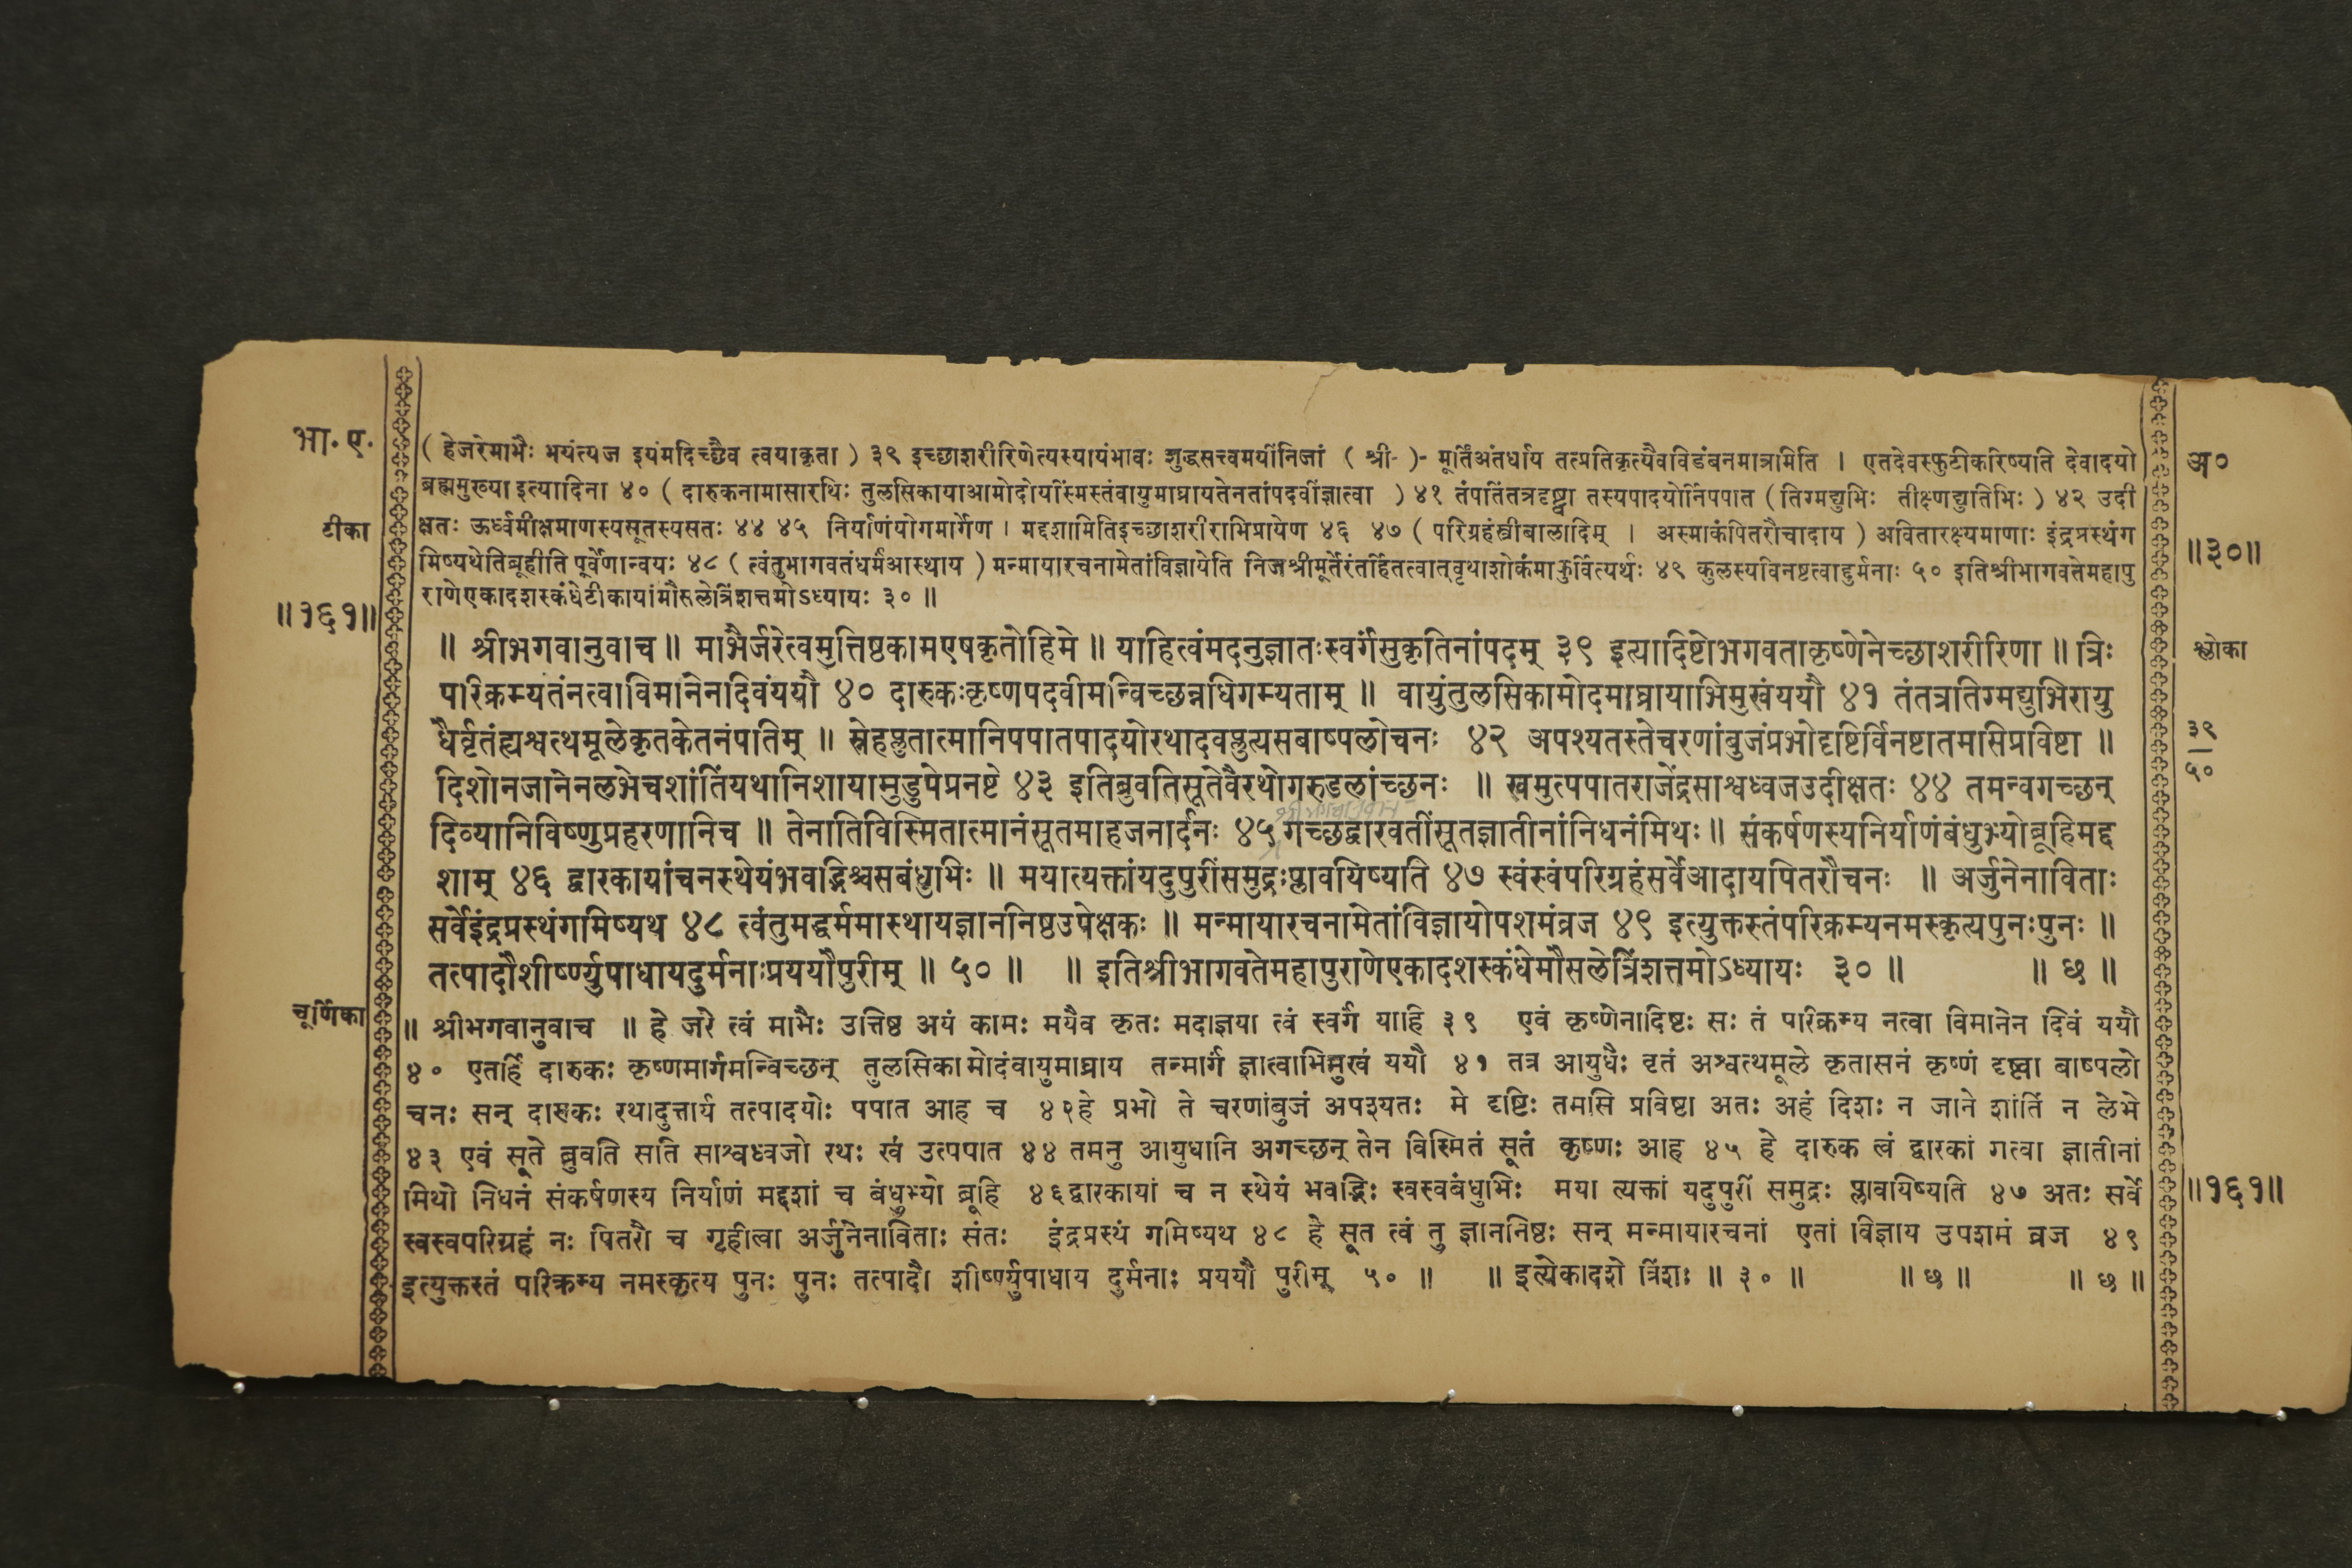 भा. ए.
टीका
॥१६१॥
( हेजरेमाभैः भयंत्यज इयंमदिच्छैव त्वयाकृता ) ३९ इच्छाशरीरिणेत्यस्यायंभावः शुद्धसत्त्वमयींनिजां ( श्री- )- मूर्तिंअंतर्धाय तत्प्रतिकृत्यैवविडंबनमात्रमिति । एतदेवस्फुटीकरिष्यति देवादयो
ब्रह्ममुख्या इत्यादिना ४० ( दारुकनामासारथिः तुलसिकायाआमोदोयस्मिंस्तंवायुमाघ्रायतेनतांपदवींज्ञात्वा ) ४१ तंपतिंतत्रदृष्ट्वा तस्यपादयोर्निपपात ( तिग्मद्युभिः तीक्ष्णद्युतिभिः ) ४२ उदी
क्षतः ऊर्ध्वमीक्षमाणस्यसूतस्यसतः ४४ ४५ निर्याणंयोगमार्गेण । मद्दशामितिइच्छाशरीराभिप्रायेण ४६ ४७ ( परिग्रहंस्त्रीबालादिम् । अस्माकंपितरौचादाय ) अवितारक्ष्यमाणाः इंद्रप्रस्थंग
मिष्यथेतिब्रूहीति पूर्वेणान्वयः ४८ ( त्वंतुभागवतंधर्मंआस्थाय ) मन्मायारचनामेतांविज्ञायेति निजश्रीमूर्तेरंतर्हितत्वात्वृथाशोकंमाकुर्वित्यर्थः ४९ कुलस्यविनष्टत्वाद्दुर्मनाः ५० इतिश्रीभागवतेमहापु
राणेएकादशस्कंधेटीकायांमौसलेत्रिंशत्तमोऽध्यायः ३० ॥
॥ श्रीभगवानुवाच ॥ माभैर्जरेत्वमुत्तिष्ठकामएषकृतोहिमे ॥ याहित्वंमदनुज्ञातःस्वर्गंसुकृतिनांपदम् ३९ इत्यादिष्टोभगवताकृष्णेनेच्छाशरीरिणा ॥ त्रिः
परिक्रम्यतंनत्वाविमानेनदिवंययौ ४० दारुकःकृष्णपदवीमन्विच्छन्नधिगम्यताम् ॥ वायुंतुलसिकामोदमाघ्रायाभिमुखंययौ ४१ तंतत्रतिग्मद्युभिरायु
धैर्वृतंह्यश्वत्थमूलेकृतकेतनंपतिम् ॥ स्नेहप्लुतात्मानिपपातपादयोरथादवप्लुत्यसबाष्पलोचनः ४२ अपश्यतस्तेचरणांबुजंप्रभोदृष्टिर्विनष्टातमसिप्रविष्टा ॥
दिशोनजानेनलभेचशांतिंयथानिशायामुडुपेप्रनष्टे ४३ इतिब्रुवतिसूतेवैरथोगरुडलांच्छनः ॥ खमुत्पपातराजेंद्रसाश्वध्वजउदीक्षतः ४४ तमन्वगच्छन्
दिव्यानिविष्णुप्रहरणानिच ॥ तेनातिविस्मितात्मानंसूतमाहजनार्दनः ४५ गच्छद्वारवतींसूतज्ञातीनांनिधनंमिथः ॥ संकर्षणस्यनिर्याणंबंधुभ्योब्रूहिमद्द
शाम् ४६ द्वारकायांचनस्थेयंभवद्भिश्चसबंधुभिः ॥ मयात्यक्तांयदुपुरींसमुद्रःप्लावयिष्यति ४७ स्वंस्वंपरिग्रहंसर्वेआदायपितरौचनः ॥ अर्जुनेनाविताः
सर्वेइंद्रप्रस्थंगमिष्यथ ४८ त्वंतुमद्धर्ममास्थायज्ञाननिष्ठउपेक्षकः ॥ मन्मायारचनामेतांविज्ञायोपशमंव्रज ४९ इत्युक्तस्तंपरिक्रम्यनमस्कृत्यपुनःपुनः ॥
तत्पादौशीर्ष्ण्युपाधायदुर्मनाःप्रययौपुरीम् ॥ ५० ॥ ॥ इतिश्रीभागवतेमहापुराणेएकादशस्कंधेमौसलेत्रिंशत्तमोऽध्यायः ३० ॥ ॥ छ ॥
चूर्णिका
॥ श्रीभगवानुवाच ॥ हे जरे त्वं माभैः उत्तिष्ठ अयं कामः मयैव कृतः मदाज्ञया त्वं स्वर्गं याहि ३९ एवं कृष्णेनादिष्टः सः तं परिक्रम्य नत्वा विमानेन दिवं ययौ
४० एतर्हि दारुकः कृष्णमार्गमन्विच्छन् तुलसिकामोदंवायुमाघ्राय तन्मार्गं ज्ञात्वाभिमुखं ययौ ४१ तत्र आयुधैः वृतं अश्वत्थमूले कृतासनं कृष्णं दृष्ट्वा बाष्पलो
चनः सन् दारुकः रथादुत्तार्य तत्पादयोः पपात आह च ४२हे प्रभो ते चरणांबुजं अपश्यतः मे दृष्टिः तमसि प्रविष्टा अतः अहं दिशः न जाने शांतिं न लेभे
४३ एवं सूते ब्रुवति सति साश्वध्वजो रथः खं उत्पपात ४४ तमनु आयुधानि अगच्छन् तेन विस्मितं सूतं कृष्णः आह ४५ हे दारुक त्वं द्वारकां गत्वा ज्ञातीनां
मिथो निधनं संकर्षणस्य निर्याणं मद्दशां च बंधुभ्यो ब्रूहि ४६द्वारकायां च न स्थेयं भवद्भिः स्वस्वबंधुभिः मया त्यक्तां यदुपुरीं समुद्रः प्लावयिष्यति ४७ अतः सर्वे
स्वस्वपरिग्रहं नः पितरौ च गृहीत्वा अर्जुनेनाविताः संतः इंद्रप्रस्थं गमिष्यथ ४८ हे सूत त्वं तु ज्ञाननिष्ठः सन् मन्मायारचनां एतां विज्ञाय उपशमं व्रज ४९
इत्युक्तस्तं परिक्रम्य नमस्कृत्य पुनः पुनः तत्पादौ शीर्ष्ण्युपाधाय दुर्मनाः प्रययौ पुरीम् ५० ॥ ॥ इत्येकादशे त्रिंशः ॥ ३० ॥ ॥ छ ॥ ॥ छ ॥
अ०
॥३०॥
श्लोका
३९
५०
॥१६१॥